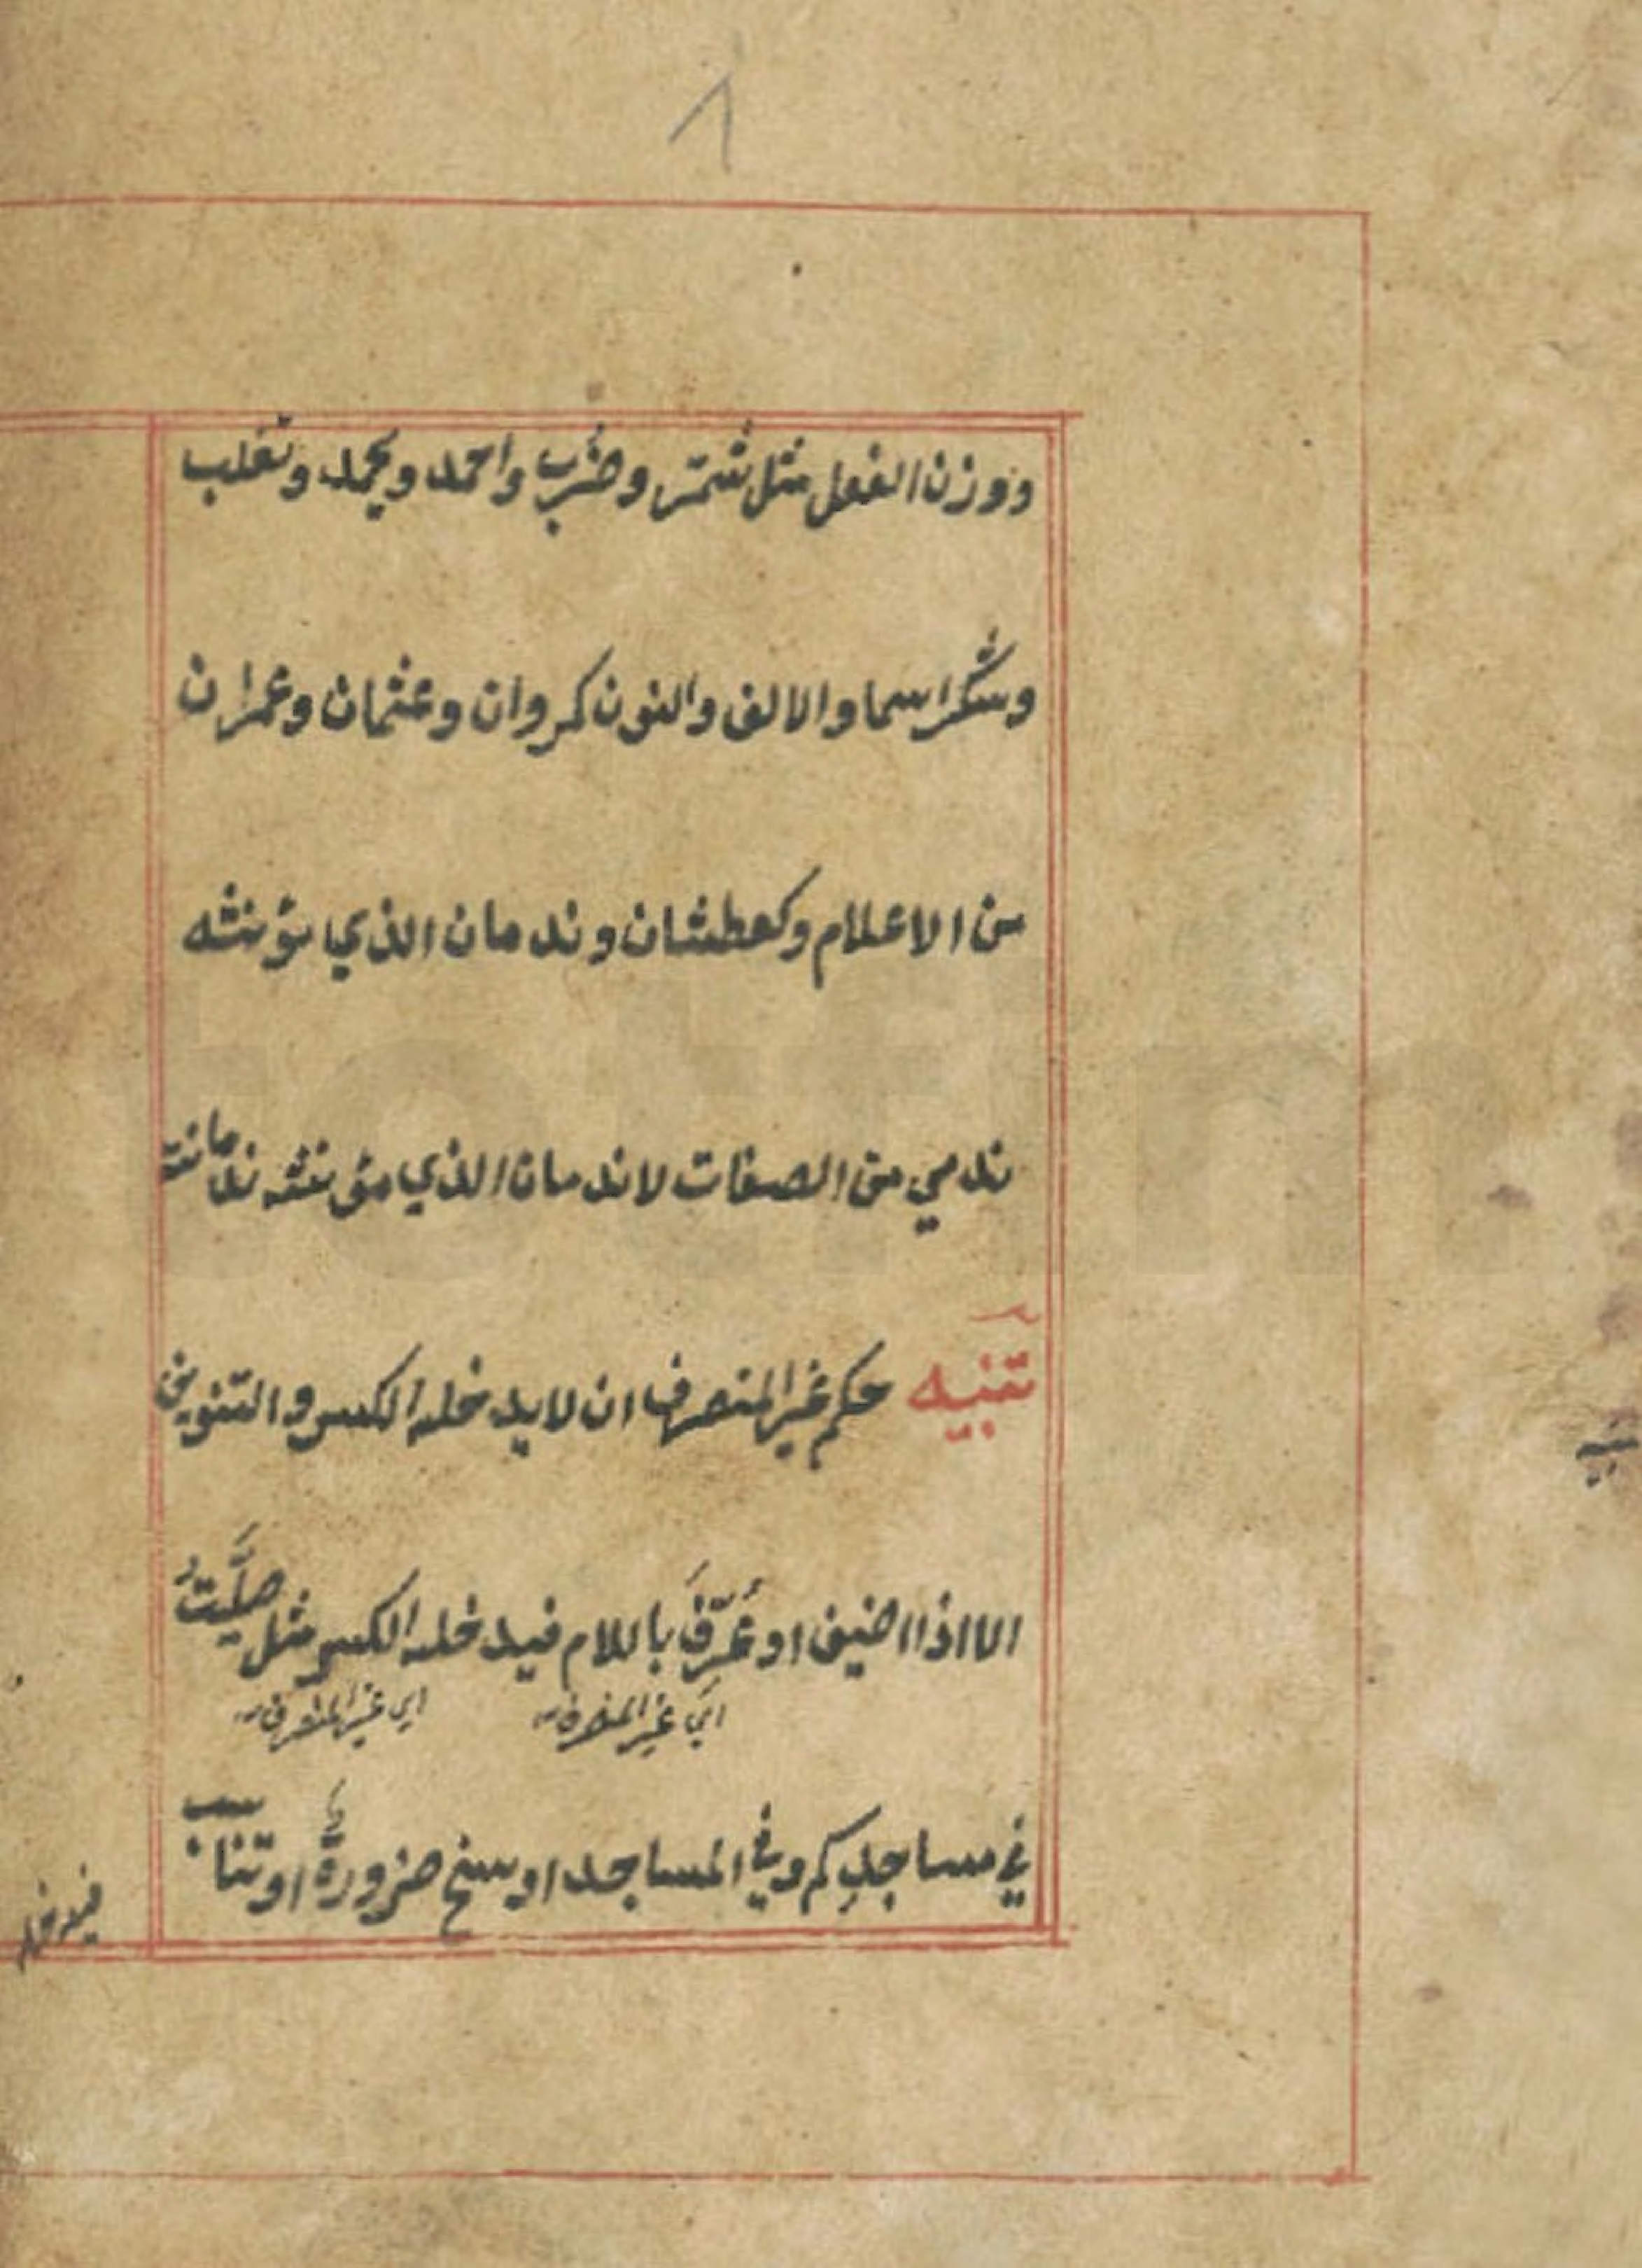 ١
ووزن الفعل مثل شمّر وضُرب واحمد ويحمد وتغلب
ويشكر اسما والالف والنون كمروان وعثمان وعمران
من الاعلام وكعطشان وندمان الذي مؤنثه
ندمي من الصفات لا ندمان الذي مؤنثه ندمانة
تنبيه حكم غير المنصرف ان لا يدخله الكسر والتنوين
الا اذا اضيف او عُرِّفَ باللام فيدخله الكسر مثل صلَّيتُ
اي غير المنصرف اي غير المنصرف
في مساجدِكم وفي المساجد او سنح ضرورةٌ او تناسب